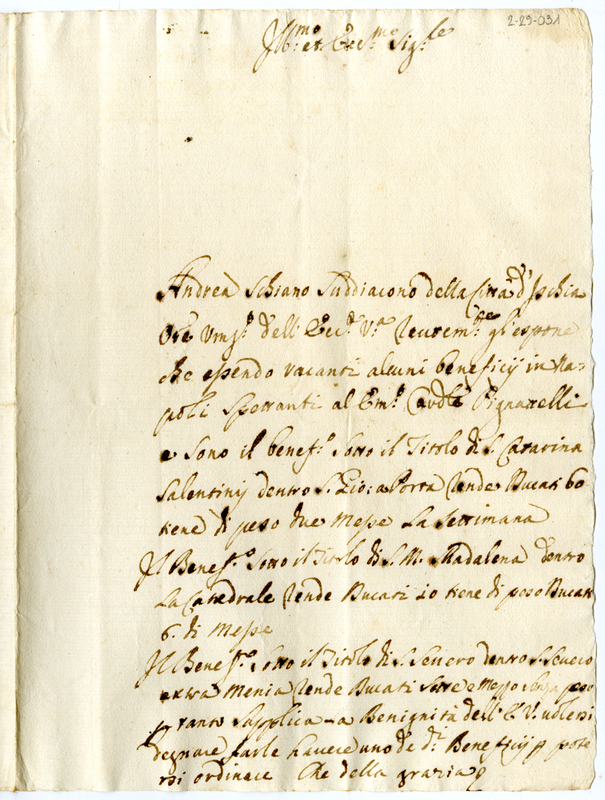 2-29-031
Ill:mo et Ecc:mo Sig:re
Andrea Schiano Suddiacono della Città d'Ischia
Ore Umj:o dell'Ecc:a V:a reverem:te gl'espone
che essendo vacanti alcuni beneficij in Na-
poli spettanti al Em:o Cardle Pignatelli
e sono il benef:o sotto il Titolo di S. Catarina
Salentinj dentro S. Gio: a Porta rende Ducati 60
tiene di peso due Messe la settimana
Il Benef:o sotto il Titolo di S. M. Madalena dentro
la Catedrale rende Ducati 20 tiene di peso Ducati
6. di Messe
Il Benef:o sotto il Titolo di S. Severo dentro S. Severo
extra menia rende Ducati sette e mezzo senza peso
p tanto supplica la Benignità dell'E. V. volersi
degnare farle havere uno de d:i Beneficij p poter
si ordinare Che della grazia